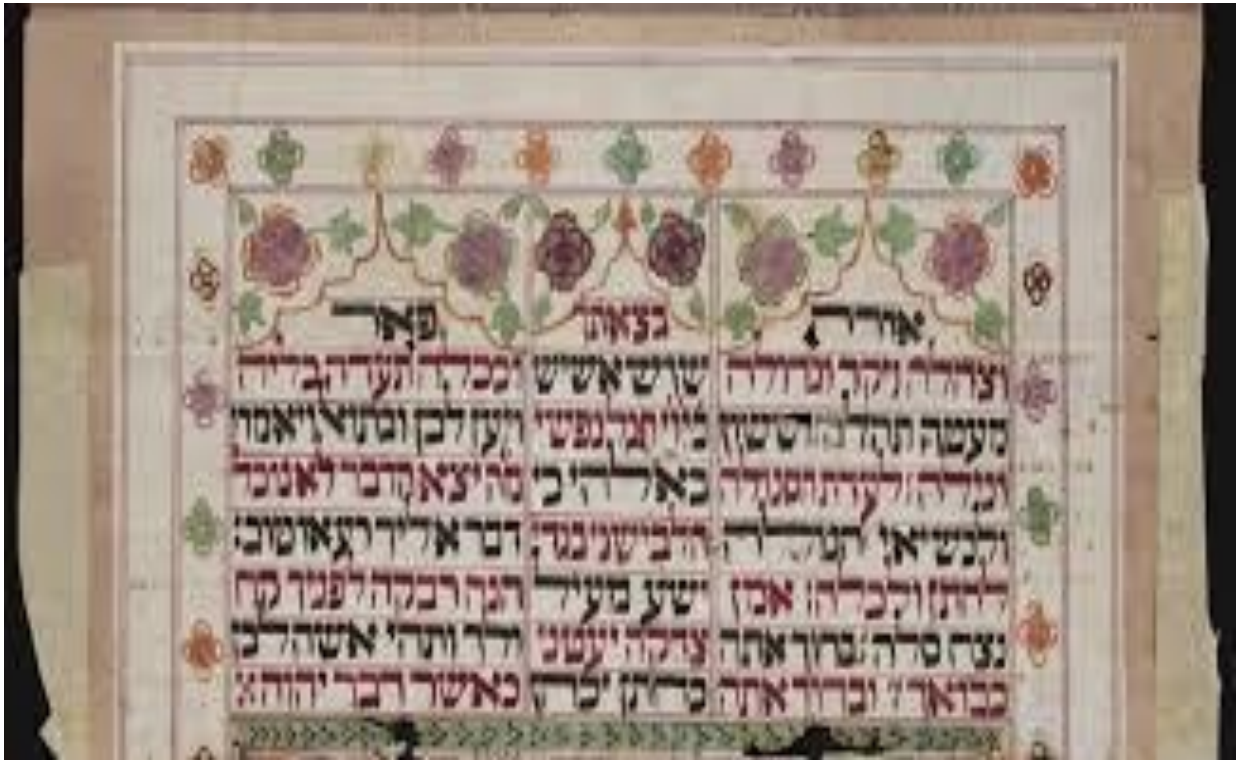 אורה
וצהלה ויקר וגדולה
מעטה תהלה וששון
לעדת וסגולה
הגולה
לחתן ולכלה: אמן
נצח סלה: ברוך אתה
בבואך וברוך אתה
בצאתך
שוש אשיש
ביי תגל נפשי
באלהי כי
הלבישני בגדי
ישע מעיל
צדקה יעטני
כחתן יכהן
פאר
וככלה תעדה כליה
ויען לבן ובתואל ויאמרו
מה יצא הדבר לא נוכל
דבר אליך רע או טוב:
הנה רבקה לפניך קח
ולך ותהי אשה לבן
כאשר דבר יהוה: